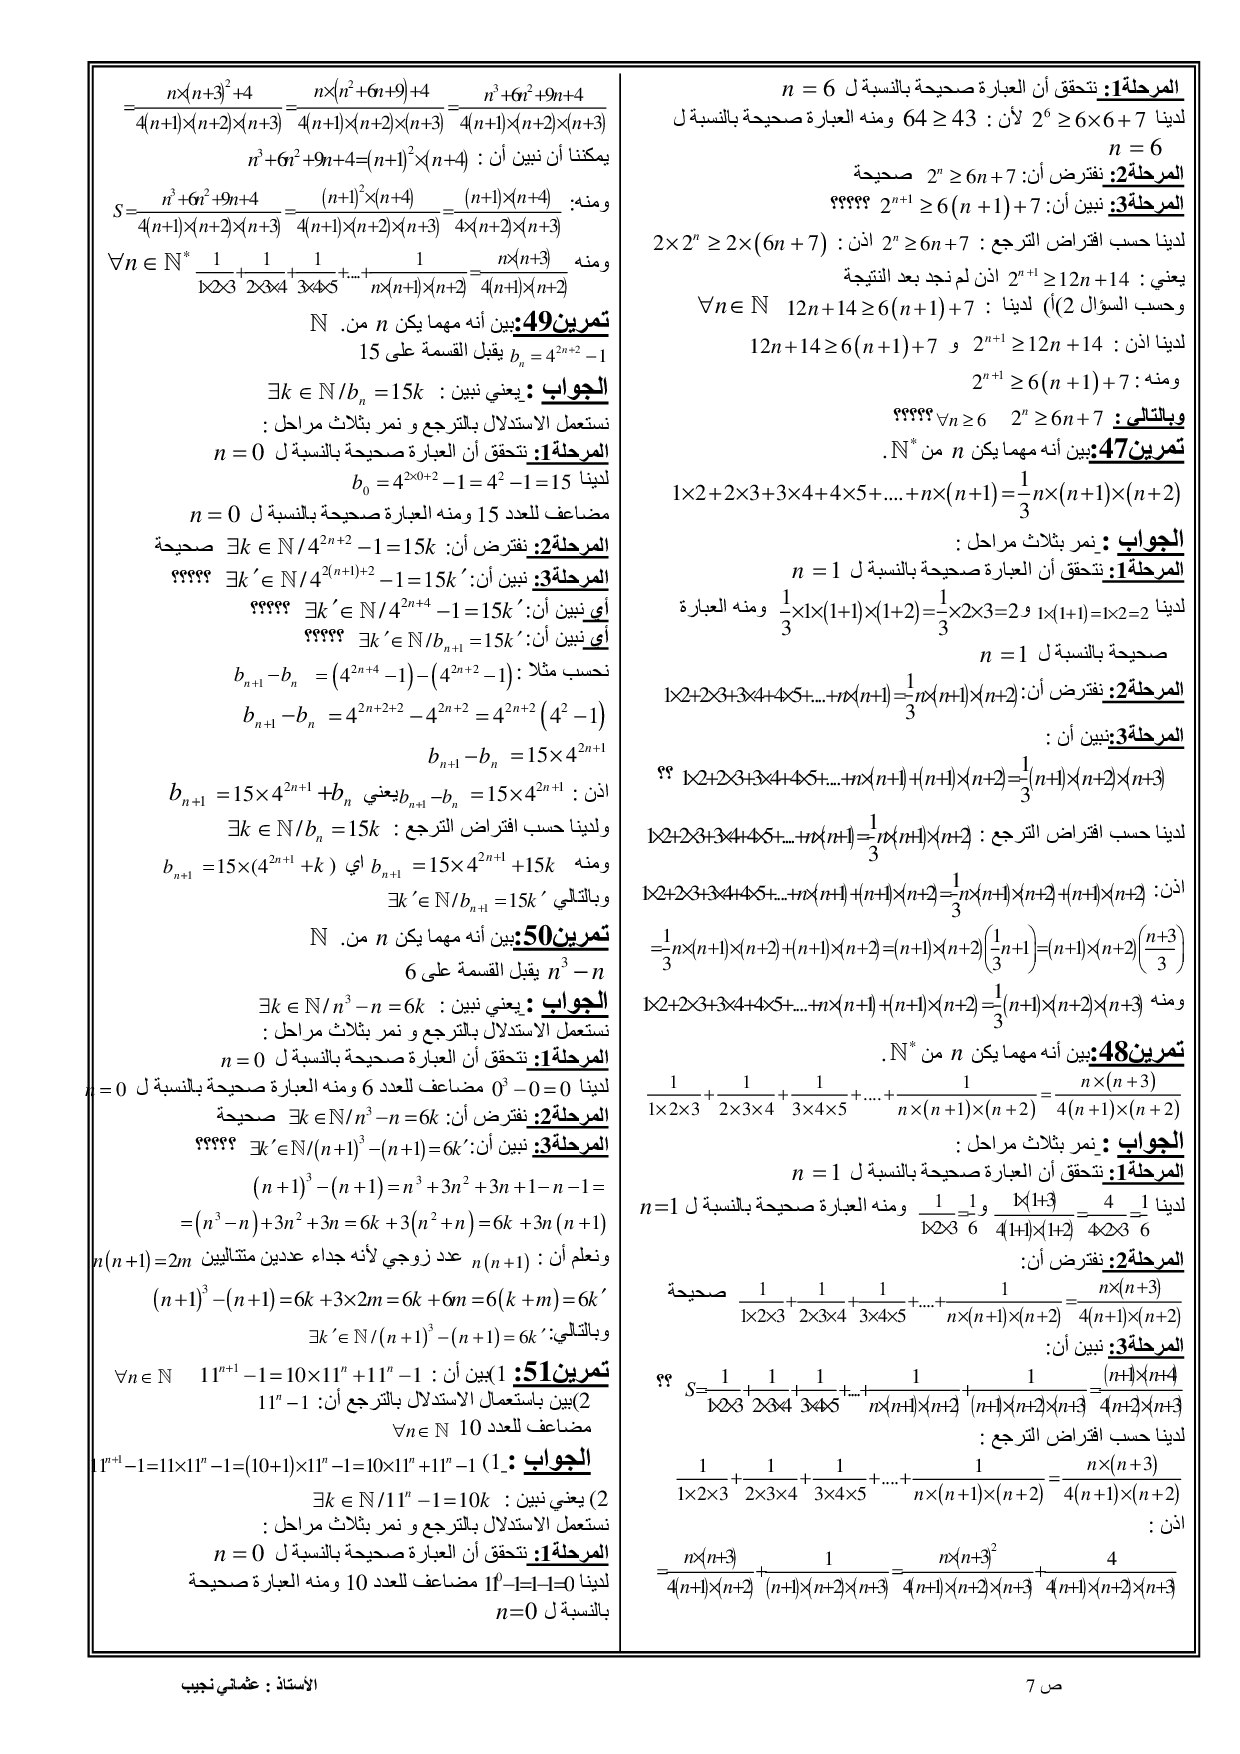 المرحلة1: نتحقق أن العبارة صحيحة بالنسبة ل n = 6
لدينا 2⁶ ≥ 6×6+7 لأن : 64 ≥ 43 ومنه العبارة صحيحة بالنسبة ل
n = 6
المرحلة2: نفترض أن: 2ⁿ ≥ 6n+7 صحيحة
المرحلة3: نبين أن: 2ⁿ⁺¹ ≥ 6(n+1)+7 ؟؟؟؟؟
لدينا حسب افتراض الترجع : 2ⁿ ≥ 6n+7 اذن : 2×2ⁿ ≥ 2×(6n+7)
يعني : 2ⁿ⁺¹ ≥ 12n+14 اذن لم نجد بعد النتيجة
وحسب السؤال 2)أ) لدينا : 12n+14 ≥ 6(n+1)+7 ∀n∈ℕ
لدينا اذن : 2ⁿ⁺¹ ≥ 12n+14 و 12n+14 ≥ 6(n+1)+7
ومنه : 2ⁿ⁺¹ ≥ 6(n+1)+7
وبالتالي : 2ⁿ ≥ 6n+7 ∀n ≥ 6 ؟؟؟؟؟
تمرين47:بين أنه مهما يكن n من ℕ* .
1×2+2×3+3×4+4×5+....+n×(n+1)=1/3 n×(n+1)×(n+2)
الجواب : نمر بثلاث مراحل :
المرحلة1: نتحقق أن العبارة صحيحة بالنسبة ل n = 1
لدينا 1×(1+1)=1×2=2 و 1/3×1×(1+1)×(1+2)=1/3×2×3=2 ومنه العبارة
صحيحة بالنسبة ل n = 1
المرحلة2: نفترض أن: 1×2+2×3+3×4+4×5+....+n×(n+1)=1/3 n×(n+1)×(n+2)
المرحلة3:نبين أن :
1×2+2×3+3×4+4×5+....+n×(n+1)+(n+1)×(n+2)=1/3(n+1)×(n+2)×(n+3) ؟؟
لدينا حسب افتراض الترجع : 1×2+2×3+3×4+4×5+....+n×(n+1)=1/3 n×(n+1)×(n+2)
اذن: 1×2+2×3+3×4+4×5+....+n×(n+1)+(n+1)×(n+2)=1/3 n×(n+1)×(n+2)+(n+1)×(n+2)
=1/3 n×(n+1)×(n+2)+(n+1)×(n+2)=(n+1)×(n+2)(1/3 n+1)=(n+1)×(n+2)((n+3)/3)
ومنه 1×2+2×3+3×4+4×5+....+n×(n+1)+(n+1)×(n+2)=1/3(n+1)×(n+2)×(n+3)
تمرين48:بين أنه مهما يكن n من ℕ* .
1/(1×2×3)+1/(2×3×4)+1/(3×4×5)+....+1/(n×(n+1)×(n+2))=n×(n+3)/(4(n+1)×(n+2))
الجواب : نمر بثلاث مراحل :
المرحلة1: نتحقق أن العبارة صحيحة بالنسبة ل n = 1
لدينا 1×(1+3)/(4(1+1)×(1+2))=4/(4×2×3)=1/6 و 1/(1×2×3)=1/6 ومنه العبارة صحيحة بالنسبة ل n=1
المرحلة2: نفترض أن:
1/(1×2×3)+1/(2×3×4)+1/(3×4×5)+....+1/(n×(n+1)×(n+2))=n×(n+3)/(4(n+1)×(n+2)) صحيحة
المرحلة3: نبين أن:
S=1/(1×2×3)+1/(2×3×4)+1/(3×4×5)+....+1/(n×(n+1)×(n+2))+1/((n+1)×(n+2)×(n+3))=(n+1)×(n+4)/(4(n+2)×(n+3)) ؟؟
لدينا حسب افتراض الترجع :
1/(1×2×3)+1/(2×3×4)+1/(3×4×5)+....+1/(n×(n+1)×(n+2))=n×(n+3)/(4(n+1)×(n+2))
اذن :
=n×(n+3)/(4(n+1)×(n+2))+1/((n+1)×(n+2)×(n+3))=n×(n+3)²/(4(n+1)×(n+2)×(n+3))+4/(4(n+1)×(n+2)×(n+3))
=(n×(n+3)²+4)/(4(n+1)×(n+2)×(n+3))=(n×(n²+6n+9)+4)/(4(n+1)×(n+2)×(n+3))=(n³+6n²+9n+4)/(4(n+1)×(n+2)×(n+3))
يمكننا أن نبين أن : n³+6n²+9n+4=(n+1)²×(n+4)
ومنه: S=(n³+6n²+9n+4)/(4(n+1)×(n+2)×(n+3))=(n+1)²×(n+4)/(4(n+1)×(n+2)×(n+3))=(n+1)×(n+4)/(4×(n+2)×(n+3))
ومنه 1/(1×2×3)+1/(2×3×4)+1/(3×4×5)+....+1/(n×(n+1)×(n+2))=n×(n+3)/(4(n+1)×(n+2)) ∀n∈ℕ*
تمرين49:بين أنه مهما يكن n من. ℕ
bₙ = 4²ⁿ⁺² −1 يقبل القسمة على 15
الجواب : يعني نبين : ∃k∈ℕ/bₙ =15k
نستعمل الاستدلال بالترجع و نمر بثلاث مراحل :
المرحلة1: نتحقق أن العبارة صحيحة بالنسبة ل n = 0
لدينا b₀ = 4^(2×0+2) −1 = 4² −1 = 15
مضاعف للعدد 15 ومنه العبارة صحيحة بالنسبة ل n = 0
المرحلة2: نفترض أن: ∃k∈ℕ/4²ⁿ⁺² −1=15k صحيحة
المرحلة3: نبين أن: ∃k′∈ℕ/4^(2(n+1)+2) −1=15k′ ؟؟؟؟؟
أي نبين أن: ∃k′∈ℕ/4²ⁿ⁺⁴ −1=15k′ ؟؟؟؟؟
أي نبين أن: ∃k′∈ℕ/bₙ₊₁ =15k′ ؟؟؟؟؟
نحسب مثلا : bₙ₊₁ −bₙ = (4²ⁿ⁺⁴ −1)−(4²ⁿ⁺² −1)
bₙ₊₁ −bₙ = 4²ⁿ⁺²⁺² −4²ⁿ⁺² = 4²ⁿ⁺²(4² −1)
bₙ₊₁ −bₙ =15×4²ⁿ⁺¹
اذن : bₙ₊₁ −bₙ =15×4²ⁿ⁺¹ يعني bₙ₊₁ =15×4²ⁿ⁺¹ +bₙ
ولدينا حسب افتراض الترجع : ∃k∈ℕ/bₙ =15k
ومنه bₙ₊₁ =15×4²ⁿ⁺¹ +15k اي bₙ₊₁ =15×(4²ⁿ⁺¹ +k)
وبالتالي ∃k′∈ℕ/bₙ₊₁ =15k′
تمرين50:بين أنه مهما يكن n من. ℕ
n³ − n يقبل القسمة على 6
الجواب : يعني نبين : ∃k∈ℕ/n³ −n=6k
نستعمل الاستدلال بالترجع و نمر بثلاث مراحل :
المرحلة1: نتحقق أن العبارة صحيحة بالنسبة ل n = 0
لدينا 0³ −0=0 مضاعف للعدد 6 ومنه العبارة صحيحة بالنسبة ل n = 0
المرحلة2: نفترض أن: ∃k∈ℕ/n³−n=6k صحيحة
المرحلة3: نبين أن: ∃k′∈ℕ/(n+1)³−(n+1)=6k′ ؟؟؟؟؟
(n+1)³ −(n+1)=n³ +3n² +3n+1−n−1=
=(n³ −n)+3n² +3n=6k+3(n² +n)=6k+3n(n+1)
ونعلم أن : n(n+1) عدد زوجي لأنه جداء عددين متتاليين n(n+1)=2m
(n+1)³ −(n+1)=6k+3×2m=6k+6m=6(k+m)=6k′
وبالتالي: ∃k′∈ℕ/(n+1)³ −(n+1)=6k′
تمرين51: 1)بين أن : 11ⁿ⁺¹ −1=10×11ⁿ +11ⁿ −1 ∀n∈ℕ
2)بين باستعمال الاستدلال بالترجع أن: 11ⁿ −1
مضاعف للعدد 10 ∀n∈ℕ
الجواب : 1) 11ⁿ⁺¹ −1=11×11ⁿ −1=(10+1)×11ⁿ −1=10×11ⁿ +11ⁿ −1
2) يعني نبين : ∃k∈ℕ/11ⁿ −1=10k
نستعمل الاستدلال بالترجع و نمر بثلاث مراحل :
المرحلة1: نتحقق أن العبارة صحيحة بالنسبة ل n = 0
لدينا 11⁰−1=1−1=0 مضاعف للعدد 10 ومنه العبارة صحيحة
بالنسبة ل n=0
ص 7
الأستاذ : عثماني نجيب